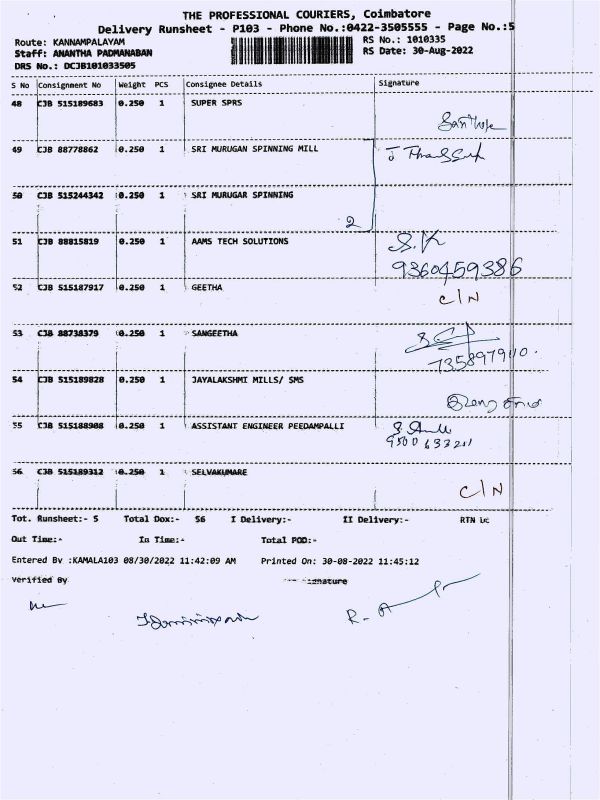 THE PROFESSIONAL COURIERS, Coimbatore
Delivery Runsheet - P103 - Phone No.:0422-3505555 - Page No.:5
Route: KANNAMPALAYAM
RS No.: 1010335
Staff: ANANTHA PADMANABAN
RS Date: 30-Aug-2022
DRS No.: DCJB101033505
S No Consignment No Weight PCS Consignee Details Signature
48 CJB 515189683 0.250 1 SUPER SPRS
49 CJB 88778862 0.250 1 SRI MURUGAN SPINNING MILL
50 CJB 515244342 0.250 1 SRI MURUGAR SPINNING
2
51 CJB 88815819 0.250 1 AAMS TECH SOLUTIONS S.K
9360459386
52 CJB 515187917 0.250 1 GEETHA
C/N
53 CJB 88738379 0.250 1 SANGEETHA
54 CJB 515189828 0.250 1 JAYALAKSHMI MILLS/ SMS
55 CJB 515188908 0.250 1 ASSISTANT ENGINEER PEEDAMPALLI
56 CJB 515189312 0.250 1 SELVAKUMARE
C/N
Tot. Runsheet:- 5 Total Dox:- 56 I Delivery:- II Delivery:- RTN
Out Time:- In Time:- Total POD:-
Entered By :KAMALA103 08/30/2022 11:42:09 AM Printed On: 30-08-2022 11:45:12
Verified By Signature